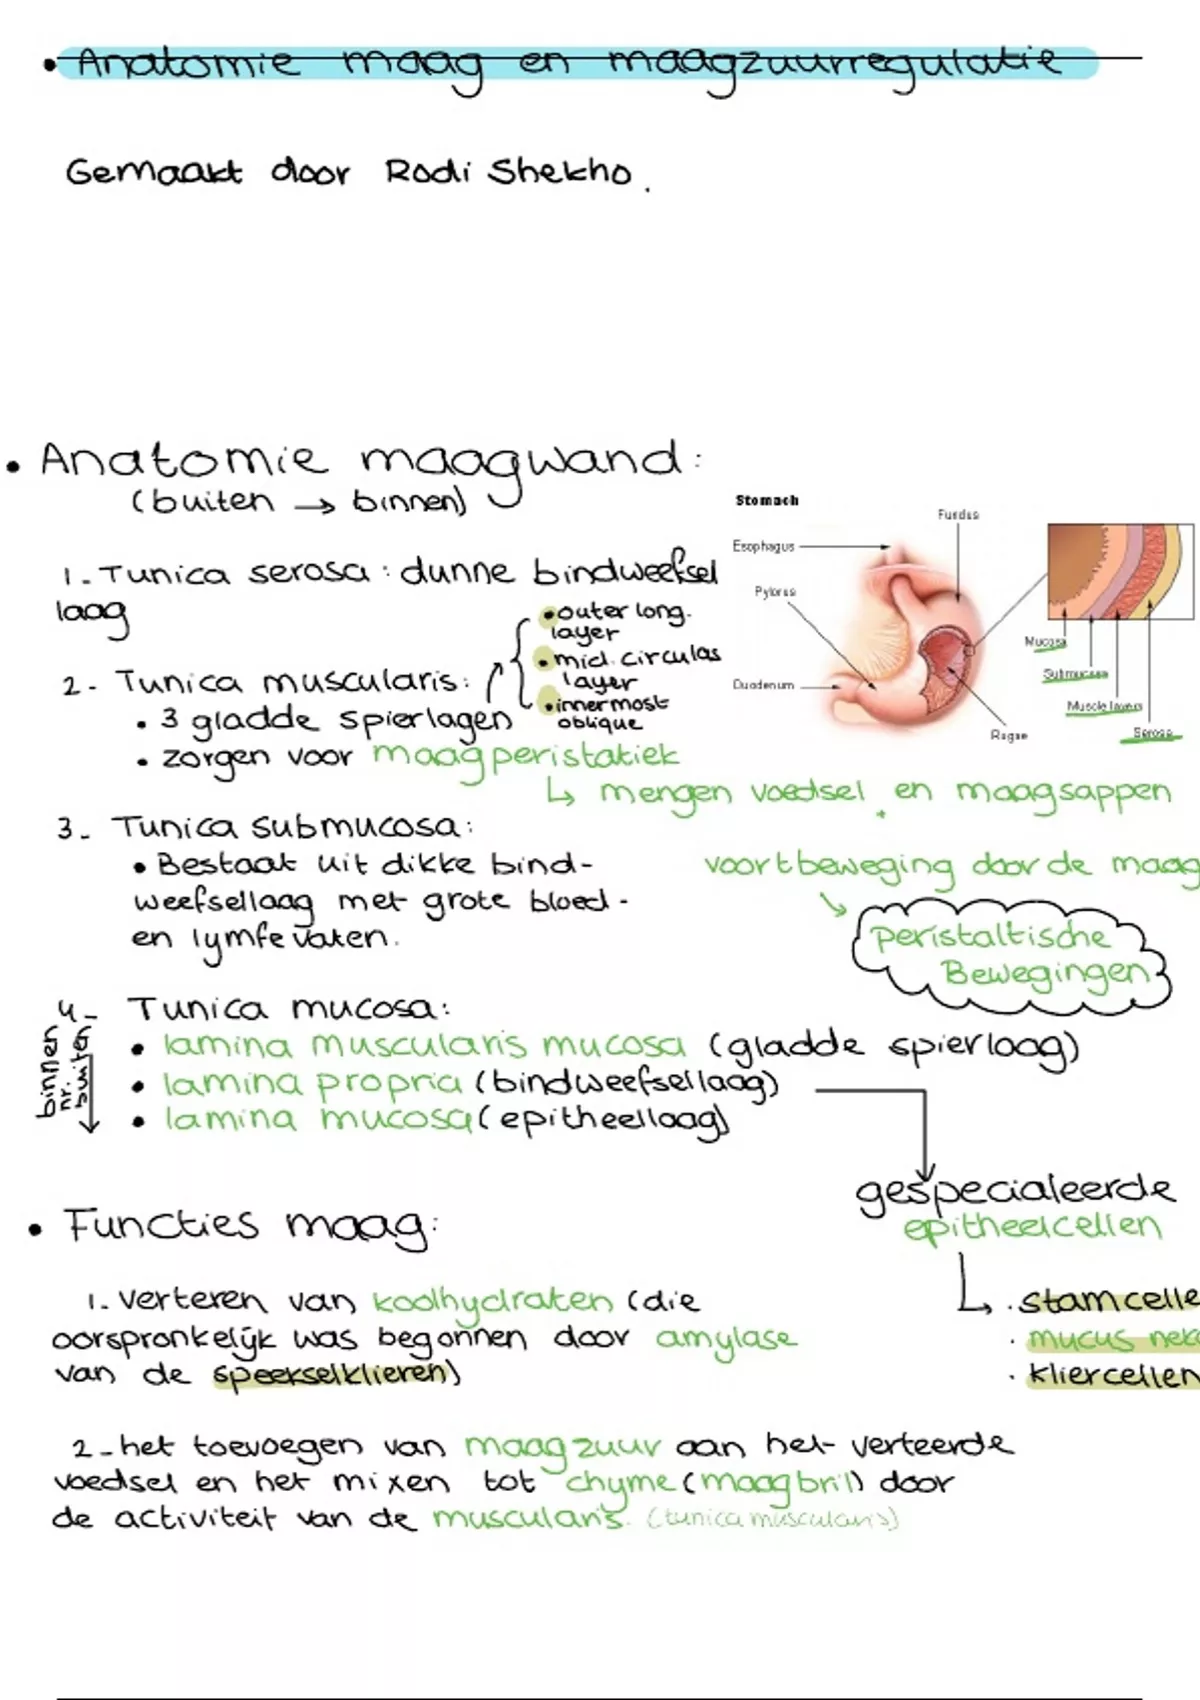 • Anatomie maag en maagzuurregulatie
Gemaakt door Rodi Shekho.
• Anatomie maagwand:
(buiten → binnen)
1. Tunica serosa: dunne bindweefsel
laag
2- Tunica muscularis:
• 3 gladde spierlagen
• outer long.
layer
• mid. circulas
layer
• innermost
oblique
• zorgen voor maagperistatiek
↳ mengen voedsel en maagsappen
+
voortbeweging door de maag
↘
peristaltische
Bewegingen
Stomach
Esophagus
Pylorus
Duodenum
Fundus
Rugae
Mucosa
Submucosa
Muscle layers
Serosa
3- Tunica submucosa:
• Bestaat uit dikke bind-
weefsellaag met grote bloed-
en lymfevaten.
4- Tunica mucosa:
binnen
nr.
buiten
• lamina muscularis mucosa (gladde spierlaag)
• lamina propria (bindweefsellaag)
• lamina mucosa (epitheellaag)
gespecialeerde
epitheelcellen
↳ • stamcelle
• mucus nek
• kliercellen
• Functies maag:
1. verteren van koolhydraten (die
oorspronkelijk was begonnen door amylase
van de speekselklieren)
2- het toevoegen van maagzuur aan het verteerde
voedsel en het mixen tot chyme (maagbril) door
de activiteit van de muscularis. (tunica muscularis)